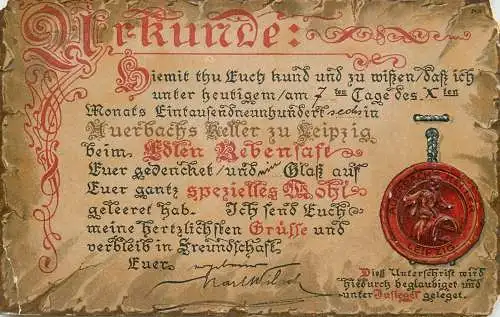 Urkunde:
Hiemit thu Euch kund und zu wißen/daß ich
unter heutigem/am 7ten Tage des Xten
Monats Eintausendneunhundert sechs in
Auerbachs Keller zu Leipzig
beim Edlen Rebensaft
Euer gedencket/und ein Glaß auf
Euer gantz spezielles Wohl
geleeret hab. Ich send Euch
meine hertzlichsten Grüsse und
verbleib in Freundschaft
Euer
LEIPZIG
Dieß Unterschrift wird
hiedurch beglaubiget und
unter Insiegel geleget.